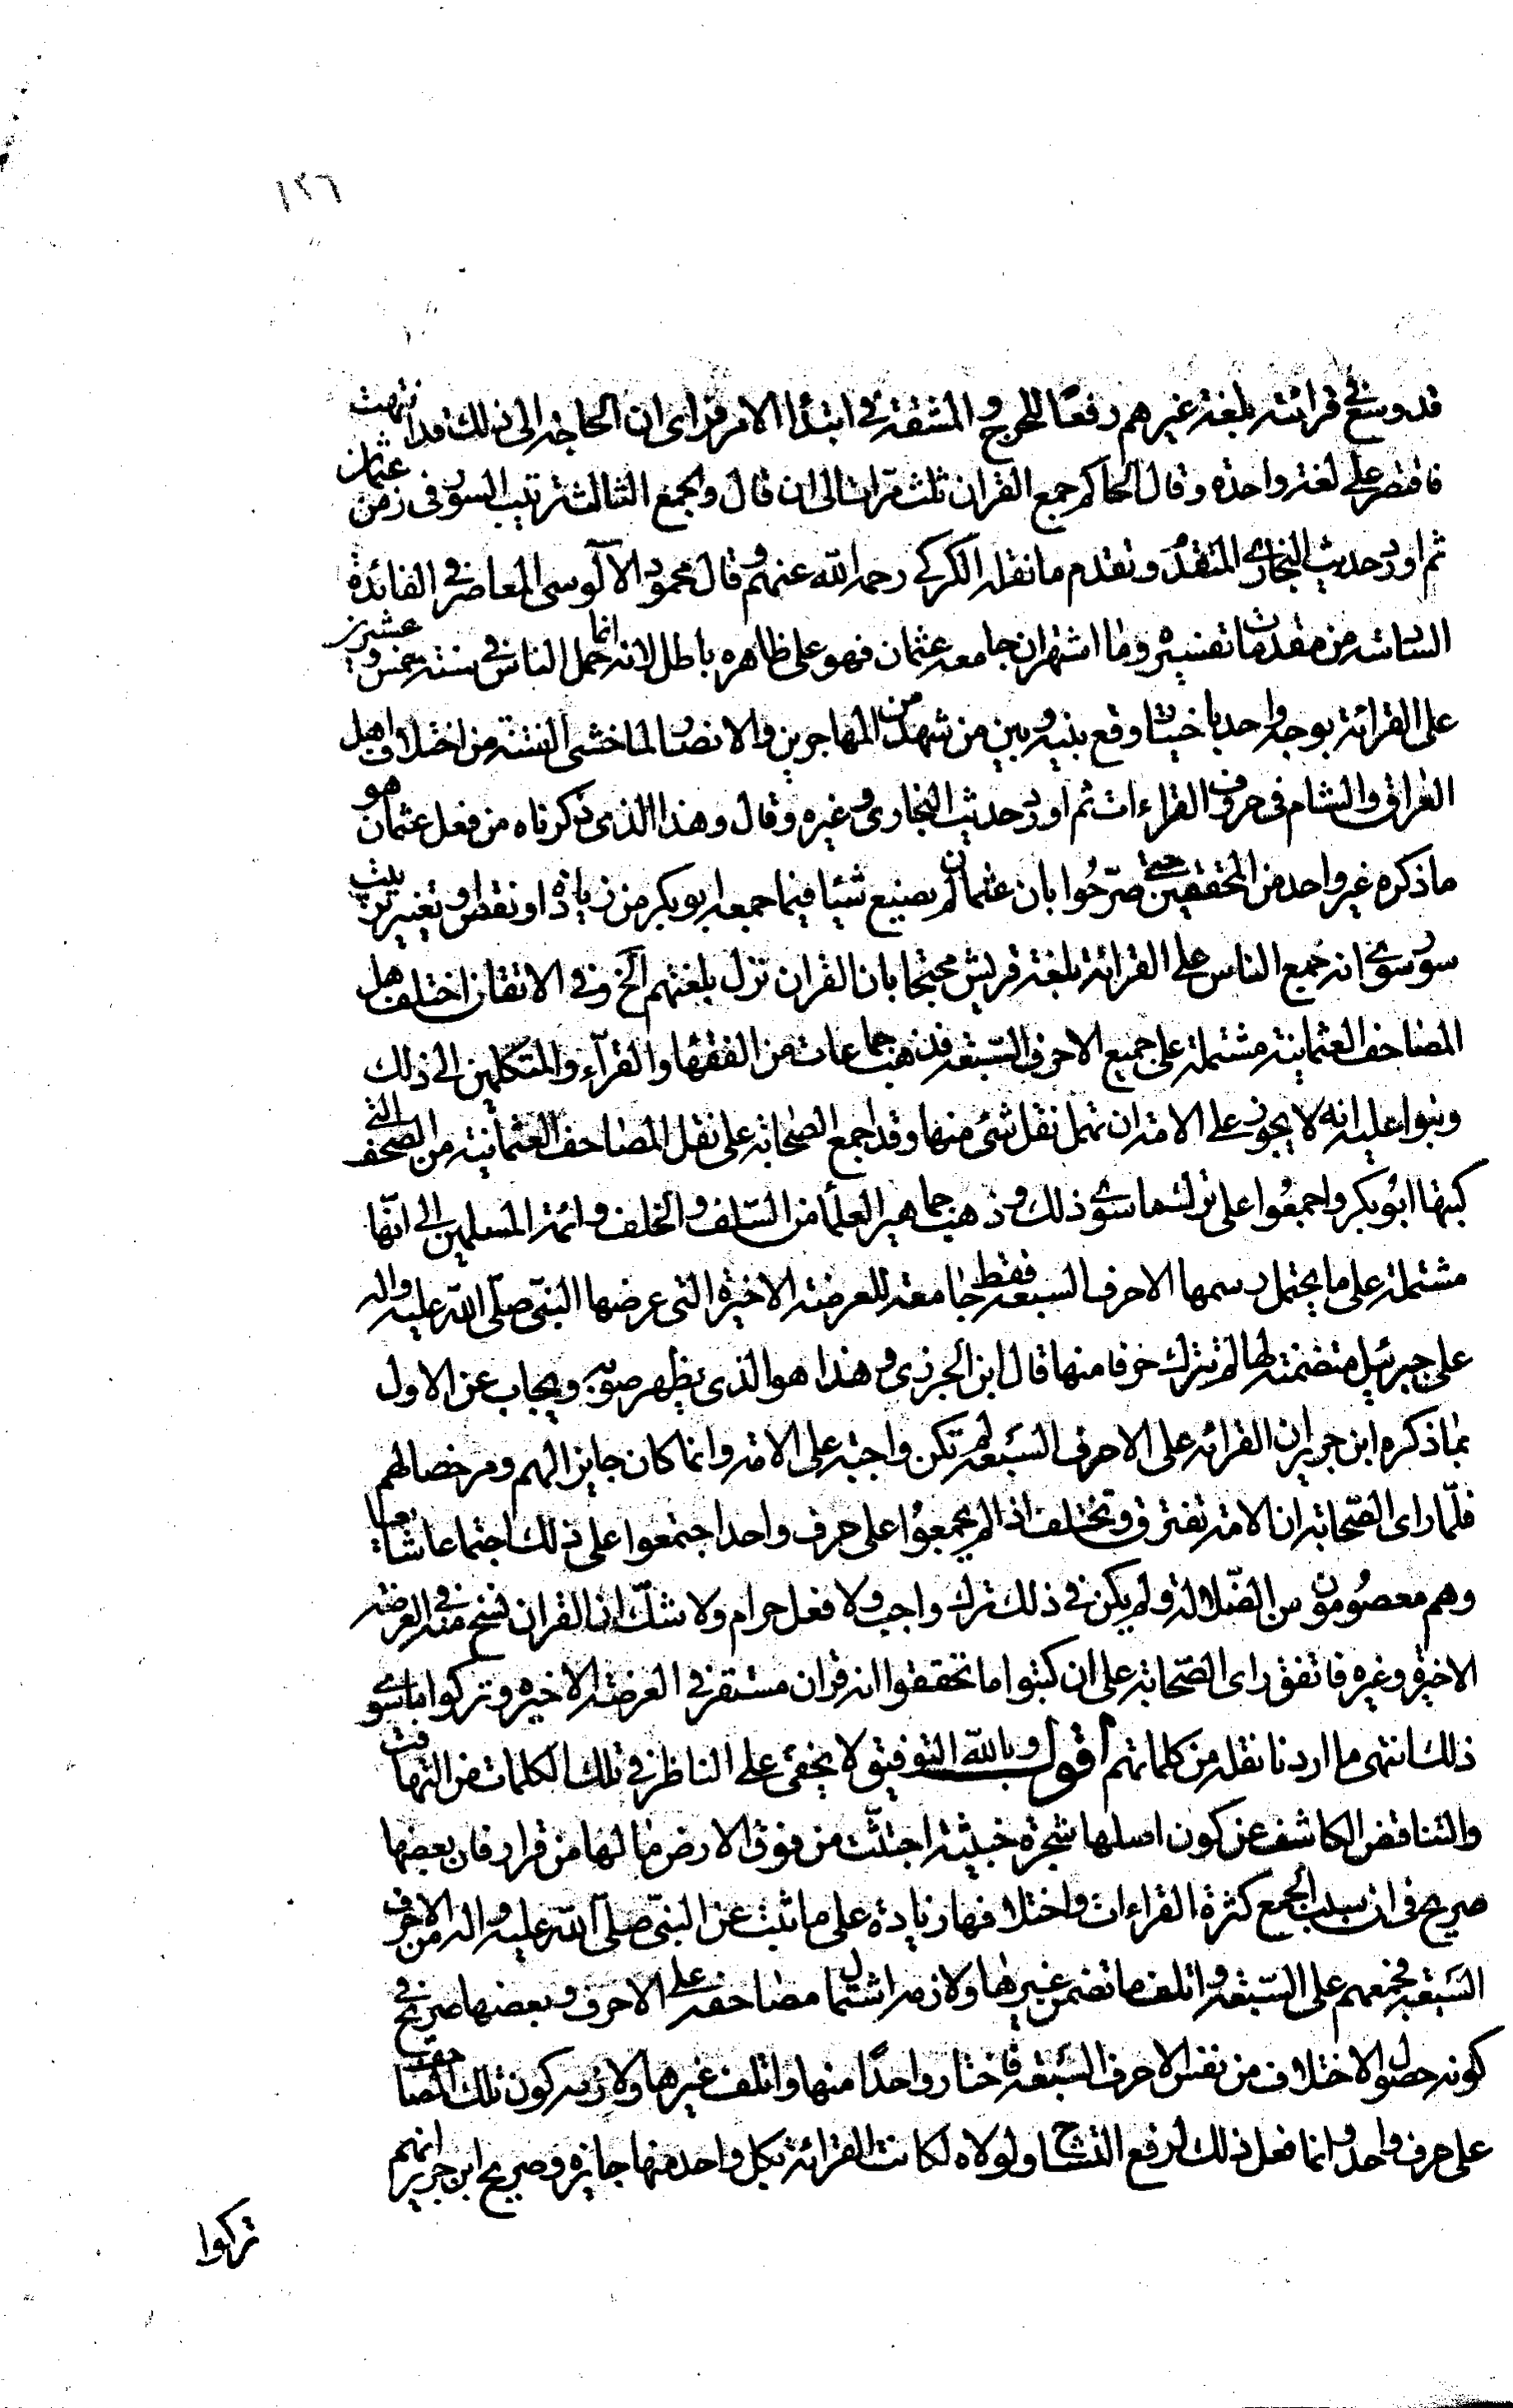 ١٢٦
قد وسع في قرائته بلغة غيرهم رفعًا للحرج و المشقة في ابتداء الامر فراى ان الحاجة الى ذلك قد انتهت
فاقتصر على لغة واحدة وقال الحاكم جمع القران ثلث مرات الى ان قال والجمع الثالث ترتيب السور في زمن عثمان
ثم اورد حديث البخاري المتقدم وتقدم ما نقله الكركي رحمه الله عنهم وقال محمود الآلوسي المعاصر في الفائدة
السادسة من مقدمات تفسيره وما اشتهر ان جامعه عثمان فهو على ظاهره باطل لانه انما حمل الناس في سنة خمس وعشرين
على القرائة بوجه واحد باختيار وقع بينه وبين من شهده من المهاجرين والانصار لما خشى الفتنة من اختلاف اهل
العراق والشام في حروف القراءات ثم اورد حديث البخاري وغيره وقال وهذا الذي ذكرناه من فعل عثمان هو
ما ذكره غير واحد من المحققين حتى صرّحوا بان عثمان لم يصنع شيئا فيما جمعه ابو بكر من زيادة او نقص او تغيير ترتيب
سور سوى انه جمع الناس على القرائة بلغة قريش محتجا بان القران نزل بلغتهم الخ وفي الاتقان اختلف هل
المصاحف العثمانية مشتملة على جميع الاحرف السّبعة فذهب جماعات من الفقهاء والقرّاء والمتكلمين الى ذلك
وبنوا عليه انه لا يجوز على الامة ان تهمل نقل شئ منها وقد اجمع الصّحابة على نقل المصاحف العثمانية من الصحف التي
كتبها ابو بكر واجمعوا على ترك ما سوى ذلك وذهب جماهير العلماء من السّلف والخلف وائمة المسلمين الى انّها
مشتملة على ما يحتمل رسمها الاحرف السبعة فقط جامعة للعرضة الاخيرة التي عرضها النبي صلّى الله عليه واله
على جبرئيل متضمنة لها لم تترك حرفا منها قال ابن الجزري وهذا هو الذي يظهر صوابه ويجاب عن الاول
بما ذكره ابن جرير ان القرائة على الاحرف السّبعة لم تكن واجبة على الامة وانما كان جايزا لهم ومرخصا لهم
فلمّا راى الصّحابة ان الامة تفترق وتختلف اذا لم يجمعوا على حرف واحد اجتمعوا على ذلك اجتماعا شايعا
وهم معصومون من الضّلالة ولم يكن في ذلك ترك واجب ولا فعل حرام ولا شكّ ان القران نسخ منه في العرضة
الاخيرة وغيره فاتفق راى الصّحابة على ان كتبوا ما تحققوا انه قران مستقر في العرضة الاخيرة وتركوا ما سوى
ذلك انتهى ما اردنا نقله من كلماتهم اقول وبالله التوفيق لا يخفى على الناظر في تلك الكلمات من التهافت
والتناقض الكاشف عن كون اصلها شجرة خبيثة اجتثّت من فوق الارض ما لها من قرار فان بعضها
صريح في ان سبب الجمع كثرة القراءات واختلافها زيادة على ما ثبت عن النبي صلّى الله عليه واله من الاحرف
السّبعة فجمعهم على السّبعة واتلف ما تضمن غيرها ولازمه اشتمال مصاحفه على الاحرف وبعضها صريح في
كونه حصول الاختلاف من نفس الاحرف السّبعة فاختار واحدًا منها واتلف غيرها ولازمه كون تلك المصاحف
على حرف واحد وانما فعل ذلك لرفع التشاح ولولاه لكانت القرائة بكل واحد منها جايزة وصريح ابن جرير انهم
تركوا